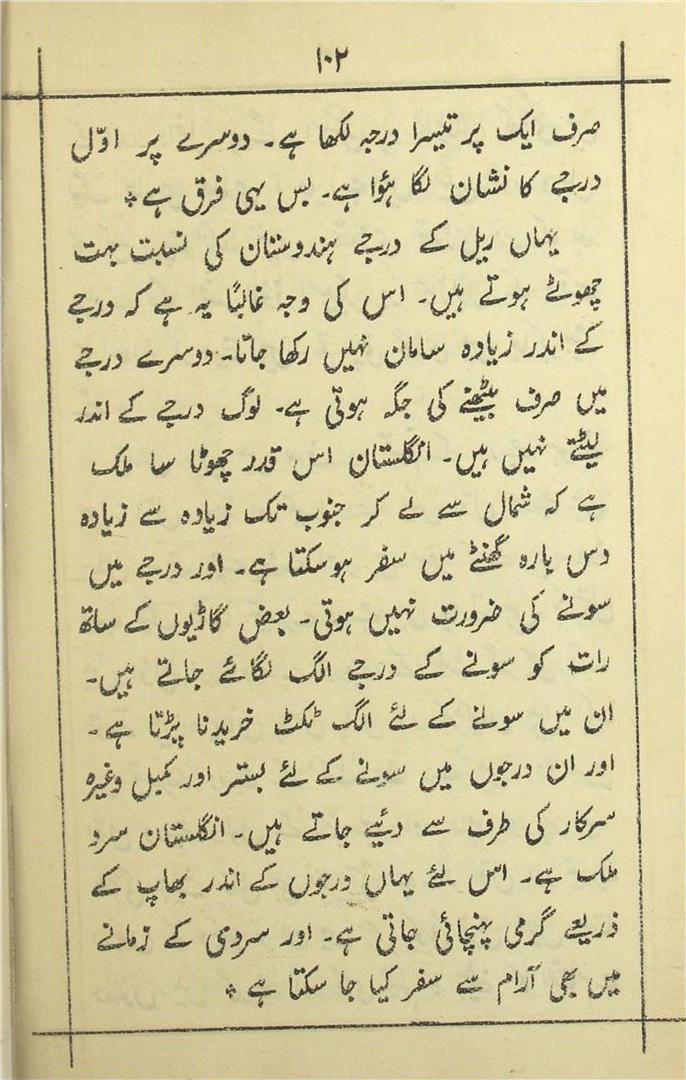 ۱۰۲
صرف ایک پر تیسرا درجہ لکھا ہے۔ دوسرے پر اوّل
درجے کا نشان لگا ہؤا ہے۔ بس یہی فرق ہے *
یہاں ریل کے درجے ہندوستان کی نسبت بہت
چھوٹے ہوتے ہیں۔ اس کی وجہ غالبًا یہ ہے کہ درجے
کے اندر زیادہ سامان نہیں رکھا جاتا۔ دوسرے درجے
میں صرف بیٹھنے کی جگہ ہوتی ہے۔ لوگ درجے کے اندر
لیٹتے نہیں ہیں۔ انگلستان اس قدر چھوٹا سا ملک
ہے کہ شمال سے لے کر جنوب تک زیادہ سے زیادہ
دس بارہ گھنٹے میں سفر ہوسکتا ہے۔ اور درجے میں
سونے کی ضرورت نہیں ہوتی۔ بعض گاڑیوں کے ساتھ
رات کو سونے کے درجے الگ لگائے جاتے ہیں۔
ان میں سونے کے لئے الگ ٹکٹ خریدنا پڑتا ہے۔
اور ان درجوں میں سونے کے لئے بستر اور کمبل وغیرہ
سرکار کی طرف سے دئیے جاتے ہیں۔ انگلستان سرد
ملک ہے۔ اس لئے یہاں درجوں کے اندر بھاپ کے
ذریعے گرمی پہنچائی جاتی ہے۔ اور سردی کے زمانے
میں بھی آرام سے سفر کیا جا سکتا ہے *